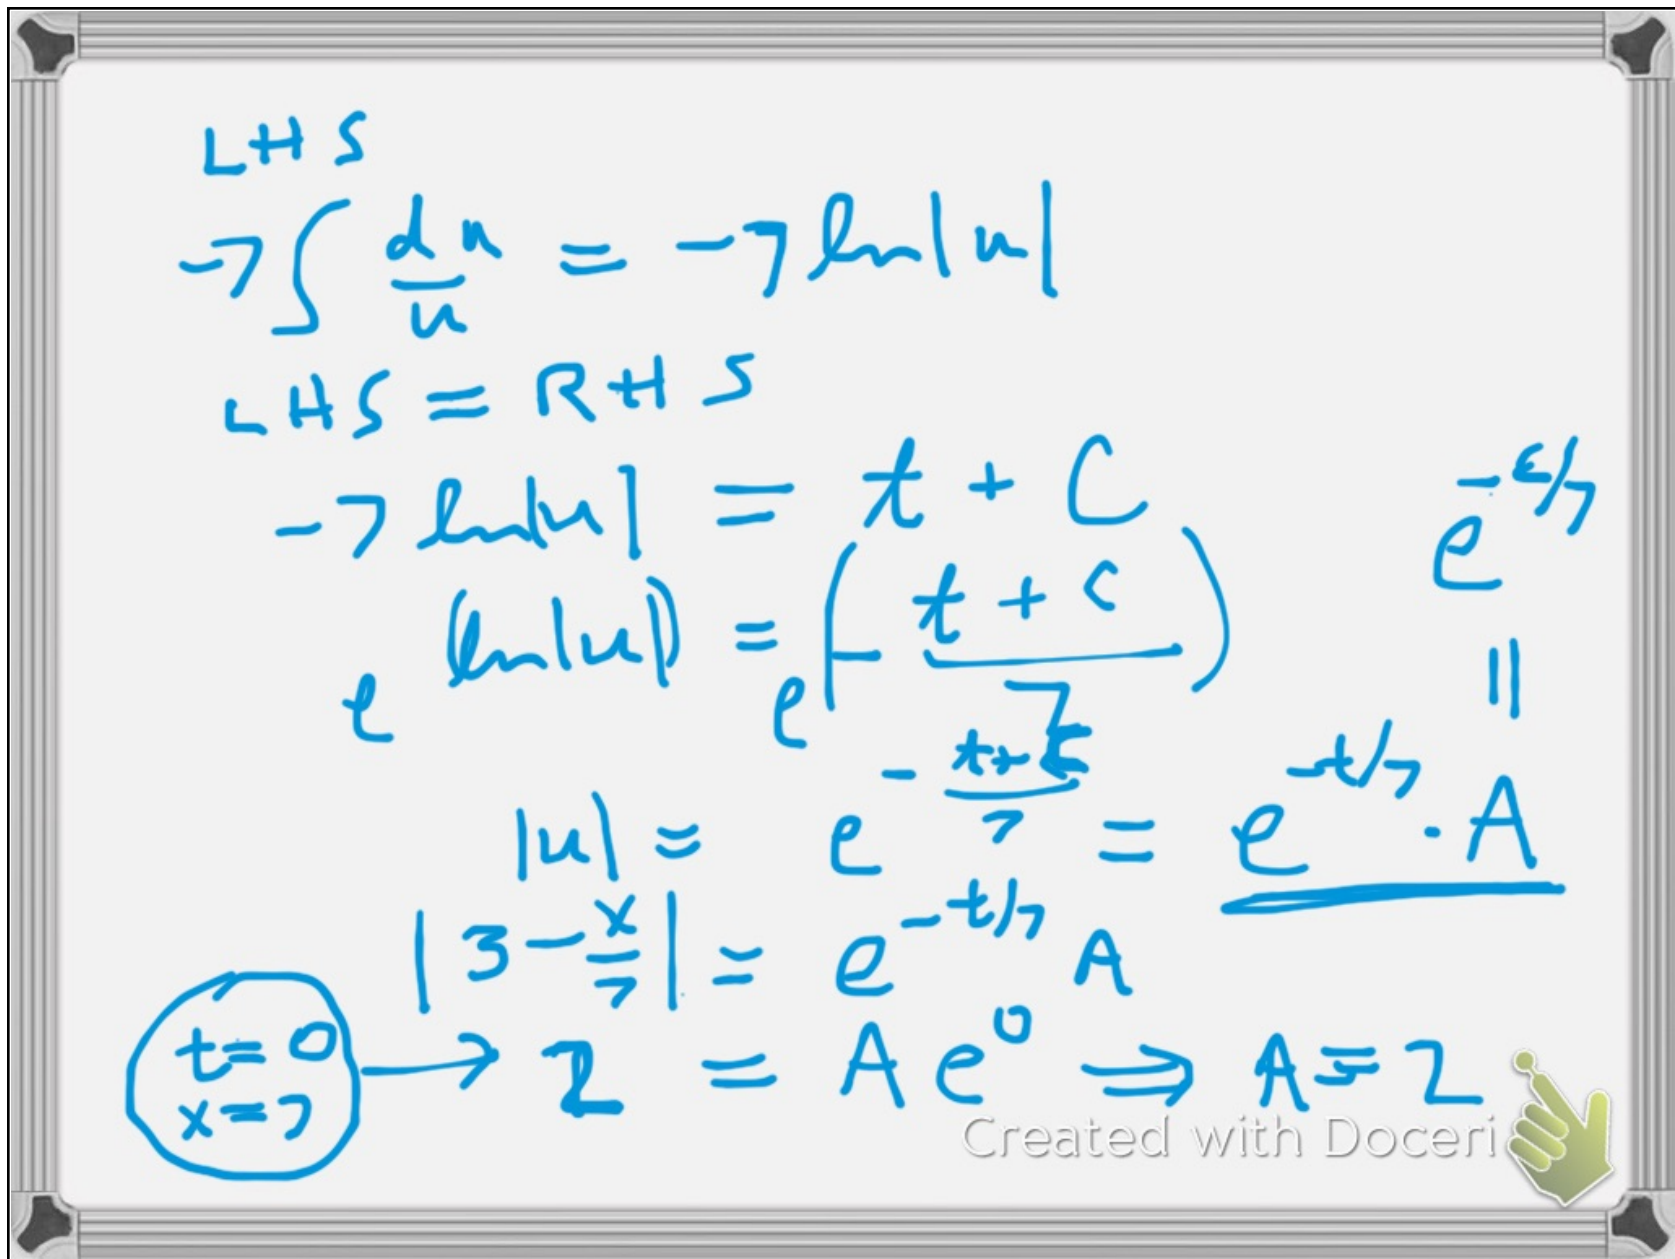 LHS
-7 ∫ du/u = -7 ln|u|
LHS = RHS
-7 ln|u| = t + C
e^(ln|u|) = e^(- (t + c)/7)
e^(-c/7)
||
|u| = e^(-(t+c)/7) = e^(-t/7) · A
|3 - x/7| = e^(-t/7) A
t = 0
x = 7
→ 2 = A e^0 ⇒ A = 2
Created with Doceri